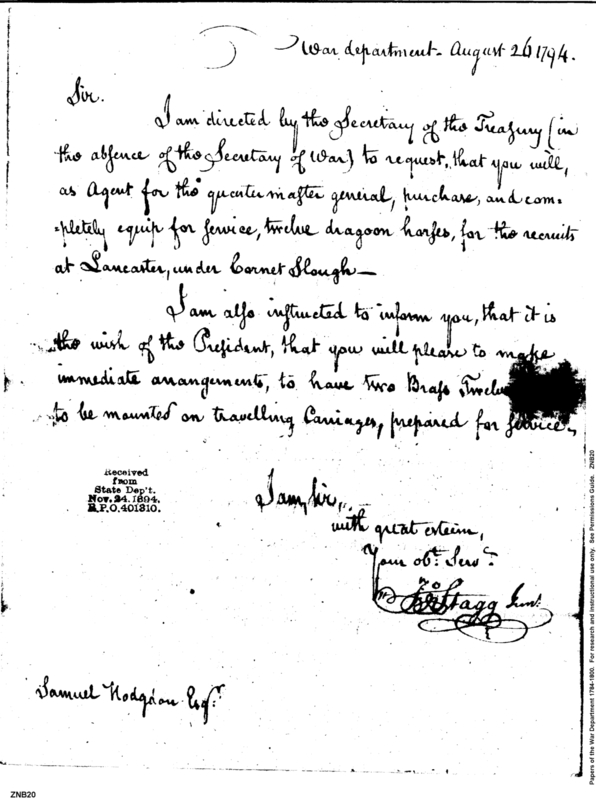 War department - August 26 1794.
Sir.
I am directed by the Secretary of the Treasury (in
the absence of the Secretary of War) to request, that you will,
as Agent for the quartermaster general, purchase, and com=
=pletely equip for service, twelve dragoon horses, for the recruits
at Lancaster, under Cornet Slough—
I am also instructed to inform you, that it is
the wish of the President, that you will please to make
immediate arrangements, to have two Brass Twelve
to be mounted on travelling Carriages, prepared for service.
Received
from
State Dep't.
Nov. 24. 1894.
R.P.O. 401310.
I am, Sir,
with great esteem,
Your obt. Servt.
Jno Stagg Junr.
Samuel Hodgdon Esqr.
ZNB20
Papers of the War Department 1784-1800. For research and instructional use only. See Permissions Guide. ZNB20